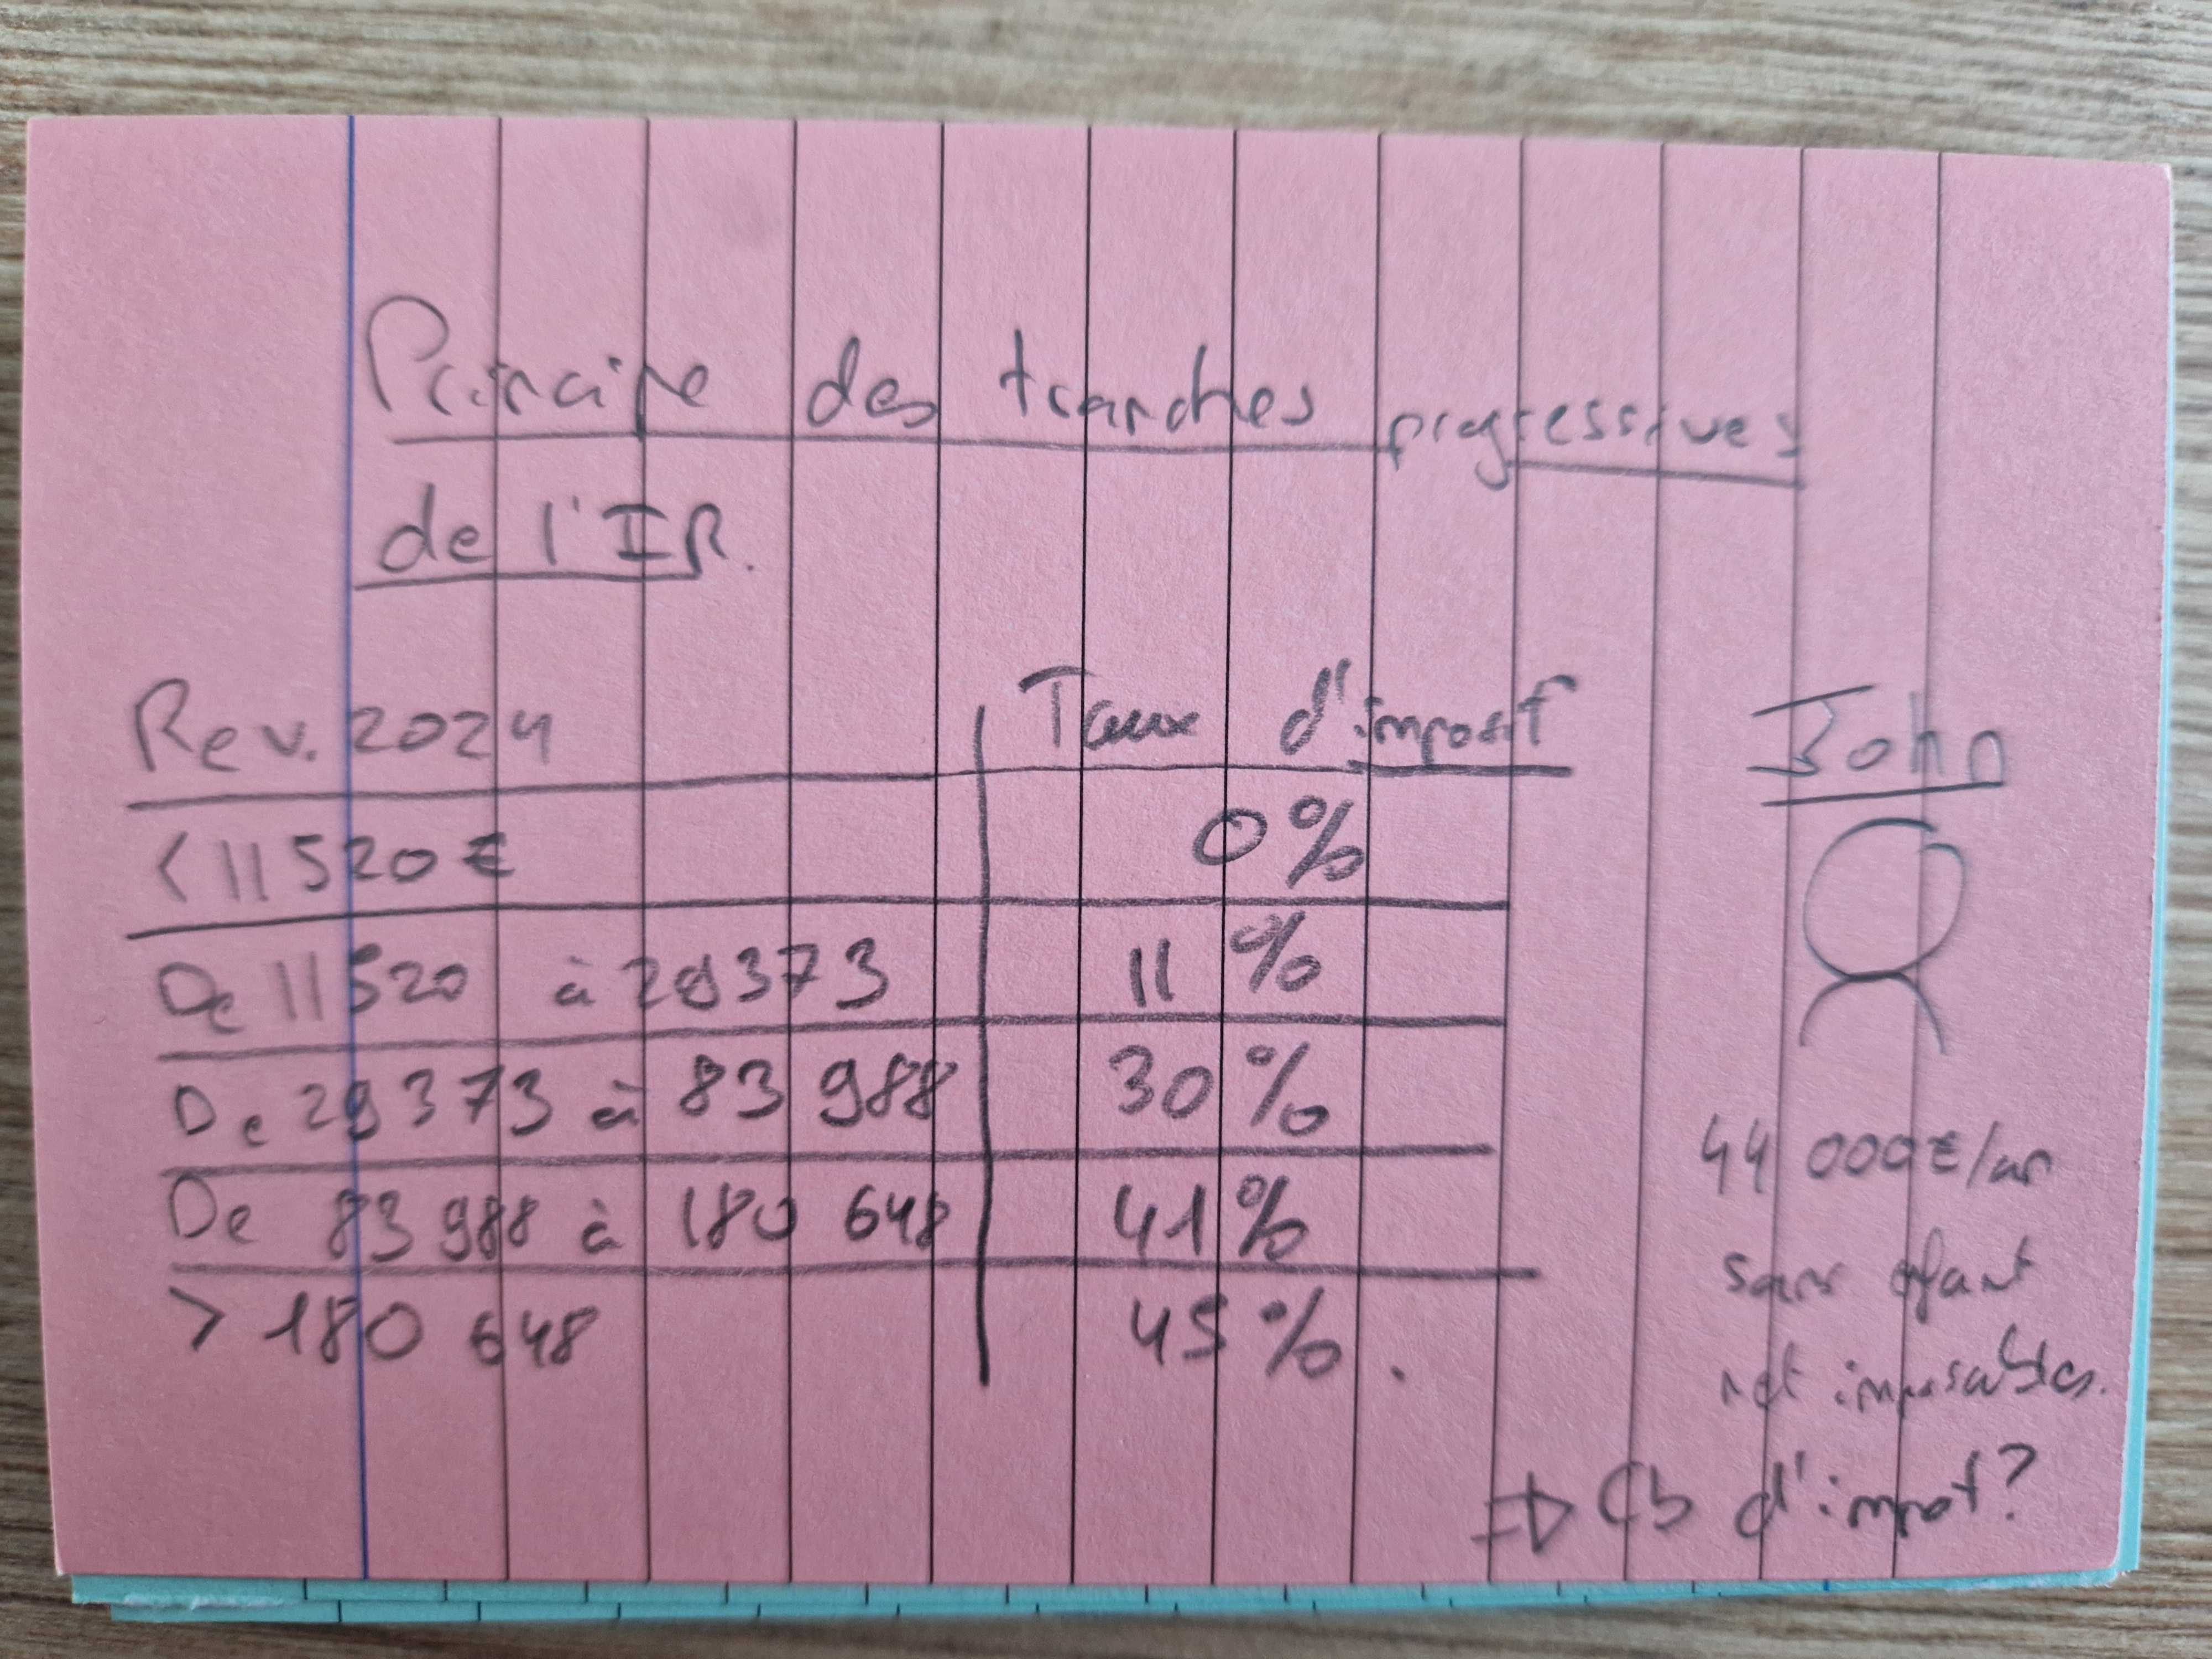 Principe des tranches progressives
de l'IR.
Rev. 2024 Taux d'imposit°
< 11 520 € 0 %
De 11 520 à 29 373 11 %
De 29 373 à 83 988 30 %
De 83 988 à 180 648 41 %
> 180 648 45 %.
John
44 000 € / an
sans efant
net imposables.
=> Cb d'impot ?